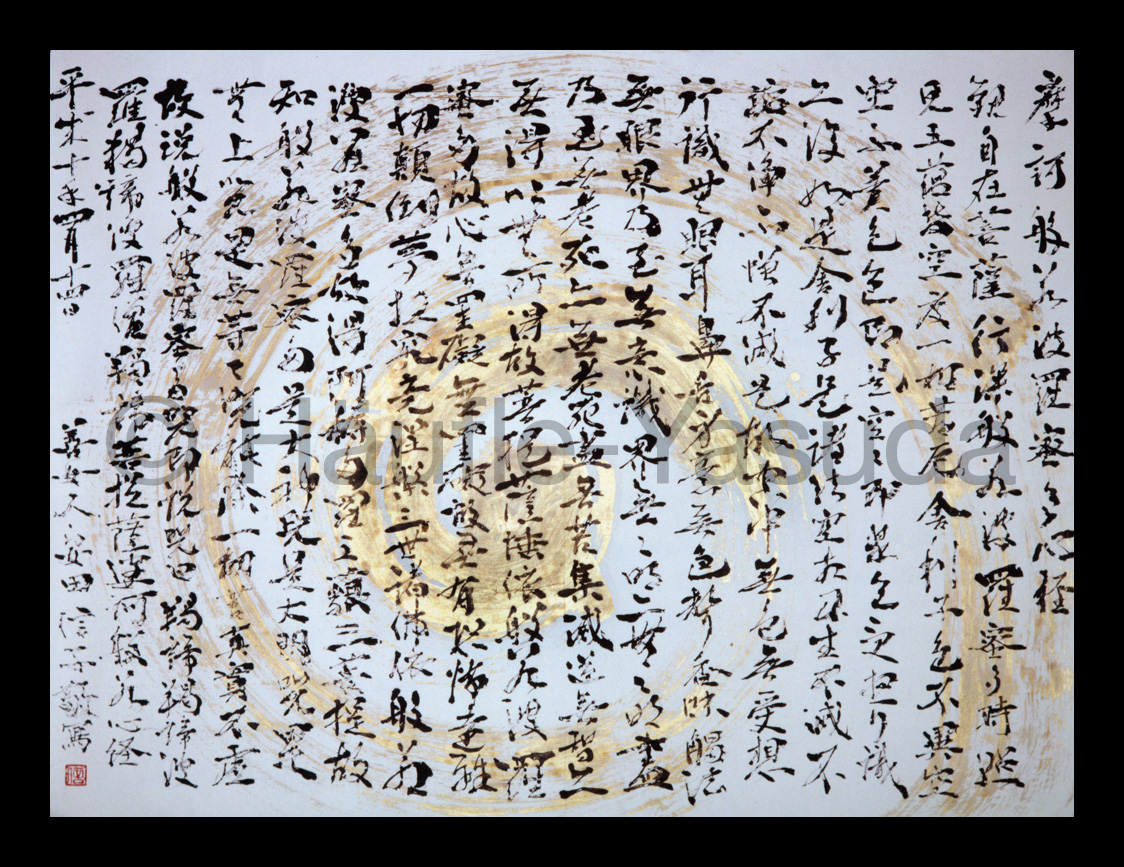 摩訶般若波羅蜜多心経
観自在菩薩行深般若波羅蜜多時照
見五蘊皆空度一切苦厄舎利子色不異空
空不異色色即是空空即是色受想行識
亦復如是舎利子是諸法空相不生不滅不
垢不浄不増不減是故空中無色無受想
行識無眼耳鼻舌身意無色声香味触法
無眼界乃至無意識界無無明亦無無明尽
乃至無老死亦無老死尽無苦集滅道無智亦
無得以無所得故菩提薩埵依般若波羅
蜜多故心無罣礙無罣礙故無有恐怖遠離
一切顛倒夢想究竟涅槃三世諸佛依般若
波羅蜜多故得阿耨多羅三藐三菩提故
知般若波羅蜜多是大神呪是大明呪是
無上呪是無等々呪能除一切苦真實不虚
故説般若波羅蜜多呪即説呪曰羯諦羯諦波
羅羯諦波羅僧羯諦菩提薩婆訶般若心経
平成十年四月 日 安田信子敬寫
© Häufle-Yasuda